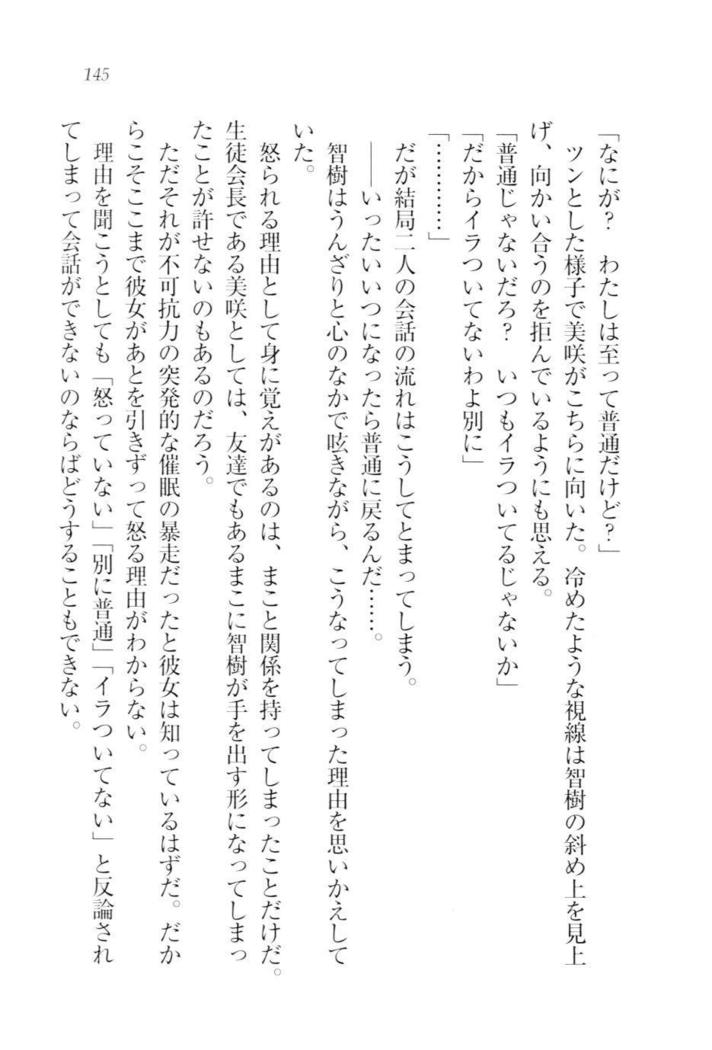 145
「なにが？　わたしは至って普通だけど？」
　ツンとした様子で美咲がこちらに向いた。冷めたような視線は智樹の斜め上を見上
げ、向かい合うのを拒んでいるようにも思える。
「普通じゃないだろ？　いつもイラついてるじゃないか」
「だからイラついてないわよ別に」
「…………」
　だが結局二人の会話の流れはこうしてとまってしまう。
　――いったいいつになったら普通に戻るんだ……。
　智樹はうんざりと心のなかで呟きながら、こうなってしまった理由を思いかえして
いた。
　怒られる理由として身に覚えがあるのは、まこと関係を持ってしまったことだけだ。
生徒会長である美咲としては、友達でもあるまこに智樹が手を出す形になってしまっ
たことが許せないのもあるのだろう。
　ただそれが不可抗力の突発的な催眠の暴走だったと彼女は知っているはずだ。だか
らこそここまで彼女があとを引きずって怒る理由がわからない。
　理由を聞こうとしても「怒っていない」「別に普通」「イラついてない」と反論され
てしまって会話ができないのならばどうすることもできない。